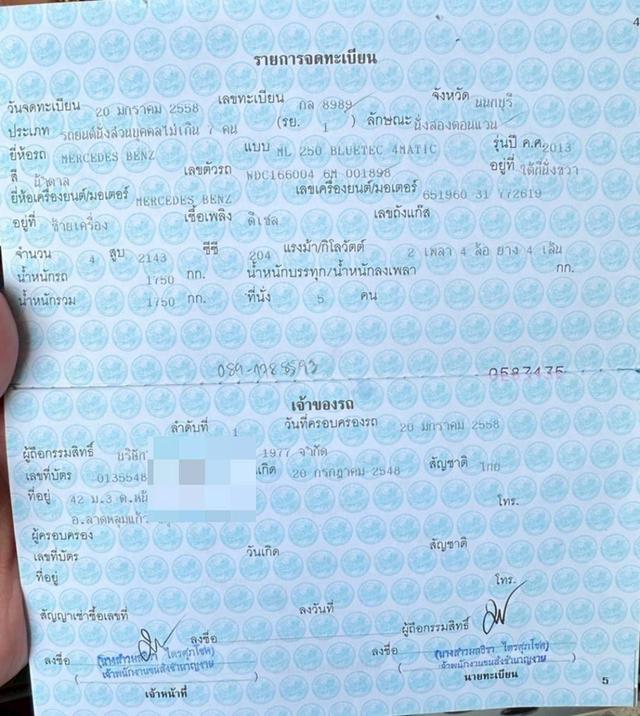 4
รายการจดทะเบียน
วันจดทะเบียน 20 มกราคม 2558 เลขทะเบียน กล 8989 จังหวัด นนทบุรี
ประเภท รถยนต์นั่งส่วนบุคคลไม่เกิน 7 คน (รย. 1 ) ลักษณะ นั่งสองตอนแวน
ยี่ห้อรถ MERCEDES BENZ แบบ ML 250 BLUETEC 4MATIC รุ่นปี ค.ศ. 2013
สี น้ำตาล เลขตัวรถ WDC166004 6M 001898 อยู่ที่ ใต้ที่นั่งขวา
ยี่ห้อเครื่องยนต์/มอเตอร์ MERCEDES BENZ เลขเครื่องยนต์/มอเตอร์ 651960 31 772619
อยู่ที่ ซ้ายเครื่อง เชื้อเพลิง ดีเซล เลขถังแก๊ส
จำนวน 4 สูบ 2143 ซีซี 204 แรงม้า/กิโลวัตต์ 2 เพลา 4 ล้อ ยาง 4 เส้น
น้ำหนักรถ 1750 กก. น้ำหนักบรรทุก/น้ำหนักลงเพลา กก.
น้ำหนักรวม 1750 กก. ที่นั่ง 5 คน
0587475
เจ้าของรถ
ลำดับที่ 1 วันที่ครอบครองรถ 20 มกราคม 2558
ผู้ถือกรรมสิทธิ์ บริษัท 1977 จำกัด
เลขที่บัตร 0135548 เกิด 20 กรกฎาคม 2548 สัญชาติ ไทย
ที่อยู่ 42 ม.3 ต.หน้ โทร.
อ.ลาดหลุมแก้ว
ผู้ครอบครอง
เลขที่บัตร วันเกิด สัญชาติ
ที่อยู่ โทร.
สัญญาเช่าซื้อเลขที่ ลงวันที่ ผู้ถือกรรมสิทธิ์
ลงชื่อ ลงชื่อ ลงชื่อ
เจ้าพนักงานขนส่งชำนาญงาน เจ้าพนักงานขนส่งชำนาญงาน
เจ้าหน้าที่ นายทะเบียน
5